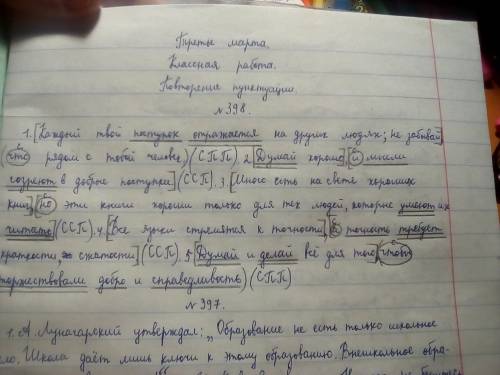 Третье марта.
Классная работа.
Повторение пунктуации.
№398.
1. [Каждый твой поступок отражается на других людях; не забывай]
(что рядом с тобой человек) (СПП). 2. [Думай хорошо] [и мысли
созреют в добрые поступки] (ССП). 3. [Много есть на свете хороших
книг], [но эти книги хороши только для тех людей, которые умеют их
читать] (ССП). 4. [Все языки стремятся к точности], [а точность требует
краткости, сжатости] (ССП). 5. [Думай и делай всё для того] (чтобы
торжествовали добро и справедливость) (СПП)
№397.
1. А. Луначарский утверждал: „Образование не есть только школьное
ло. Школа даёт лишь ключи к этому образованию. Внешкольное обра-